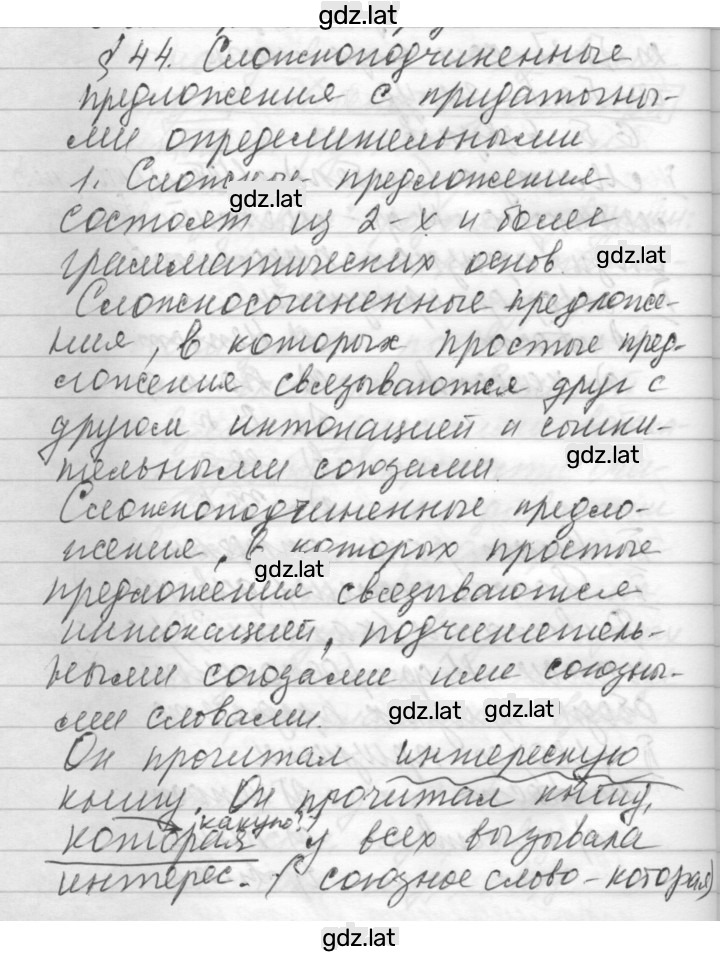 gdz.lat
§ 44. Сложноподчиненные
предложения с придаточны-
ми определительными
1. Сложные предложения
gdz.lat
состоят из 2-х и более
грамматических основ.
gdz.lat
Сложносочиненные предложе-
ния, в которых простые пред-
ложения связываются друг с
другом интонацией и сочини-
тельными союзами.
gdz.lat
Сложноподчиненные предло-
жения, в которых простые
gdz.lat
предложения связываются
интонацией, подчинитель-
ными союзами или союзны-
ми словами.
gdz.lat gdz.lat
Он прочитал интересную
книгу. Он прочитал книгу,
(какую?)
которая у всех вызывала
интерес. (союзное слово - которая)
gdz.lat